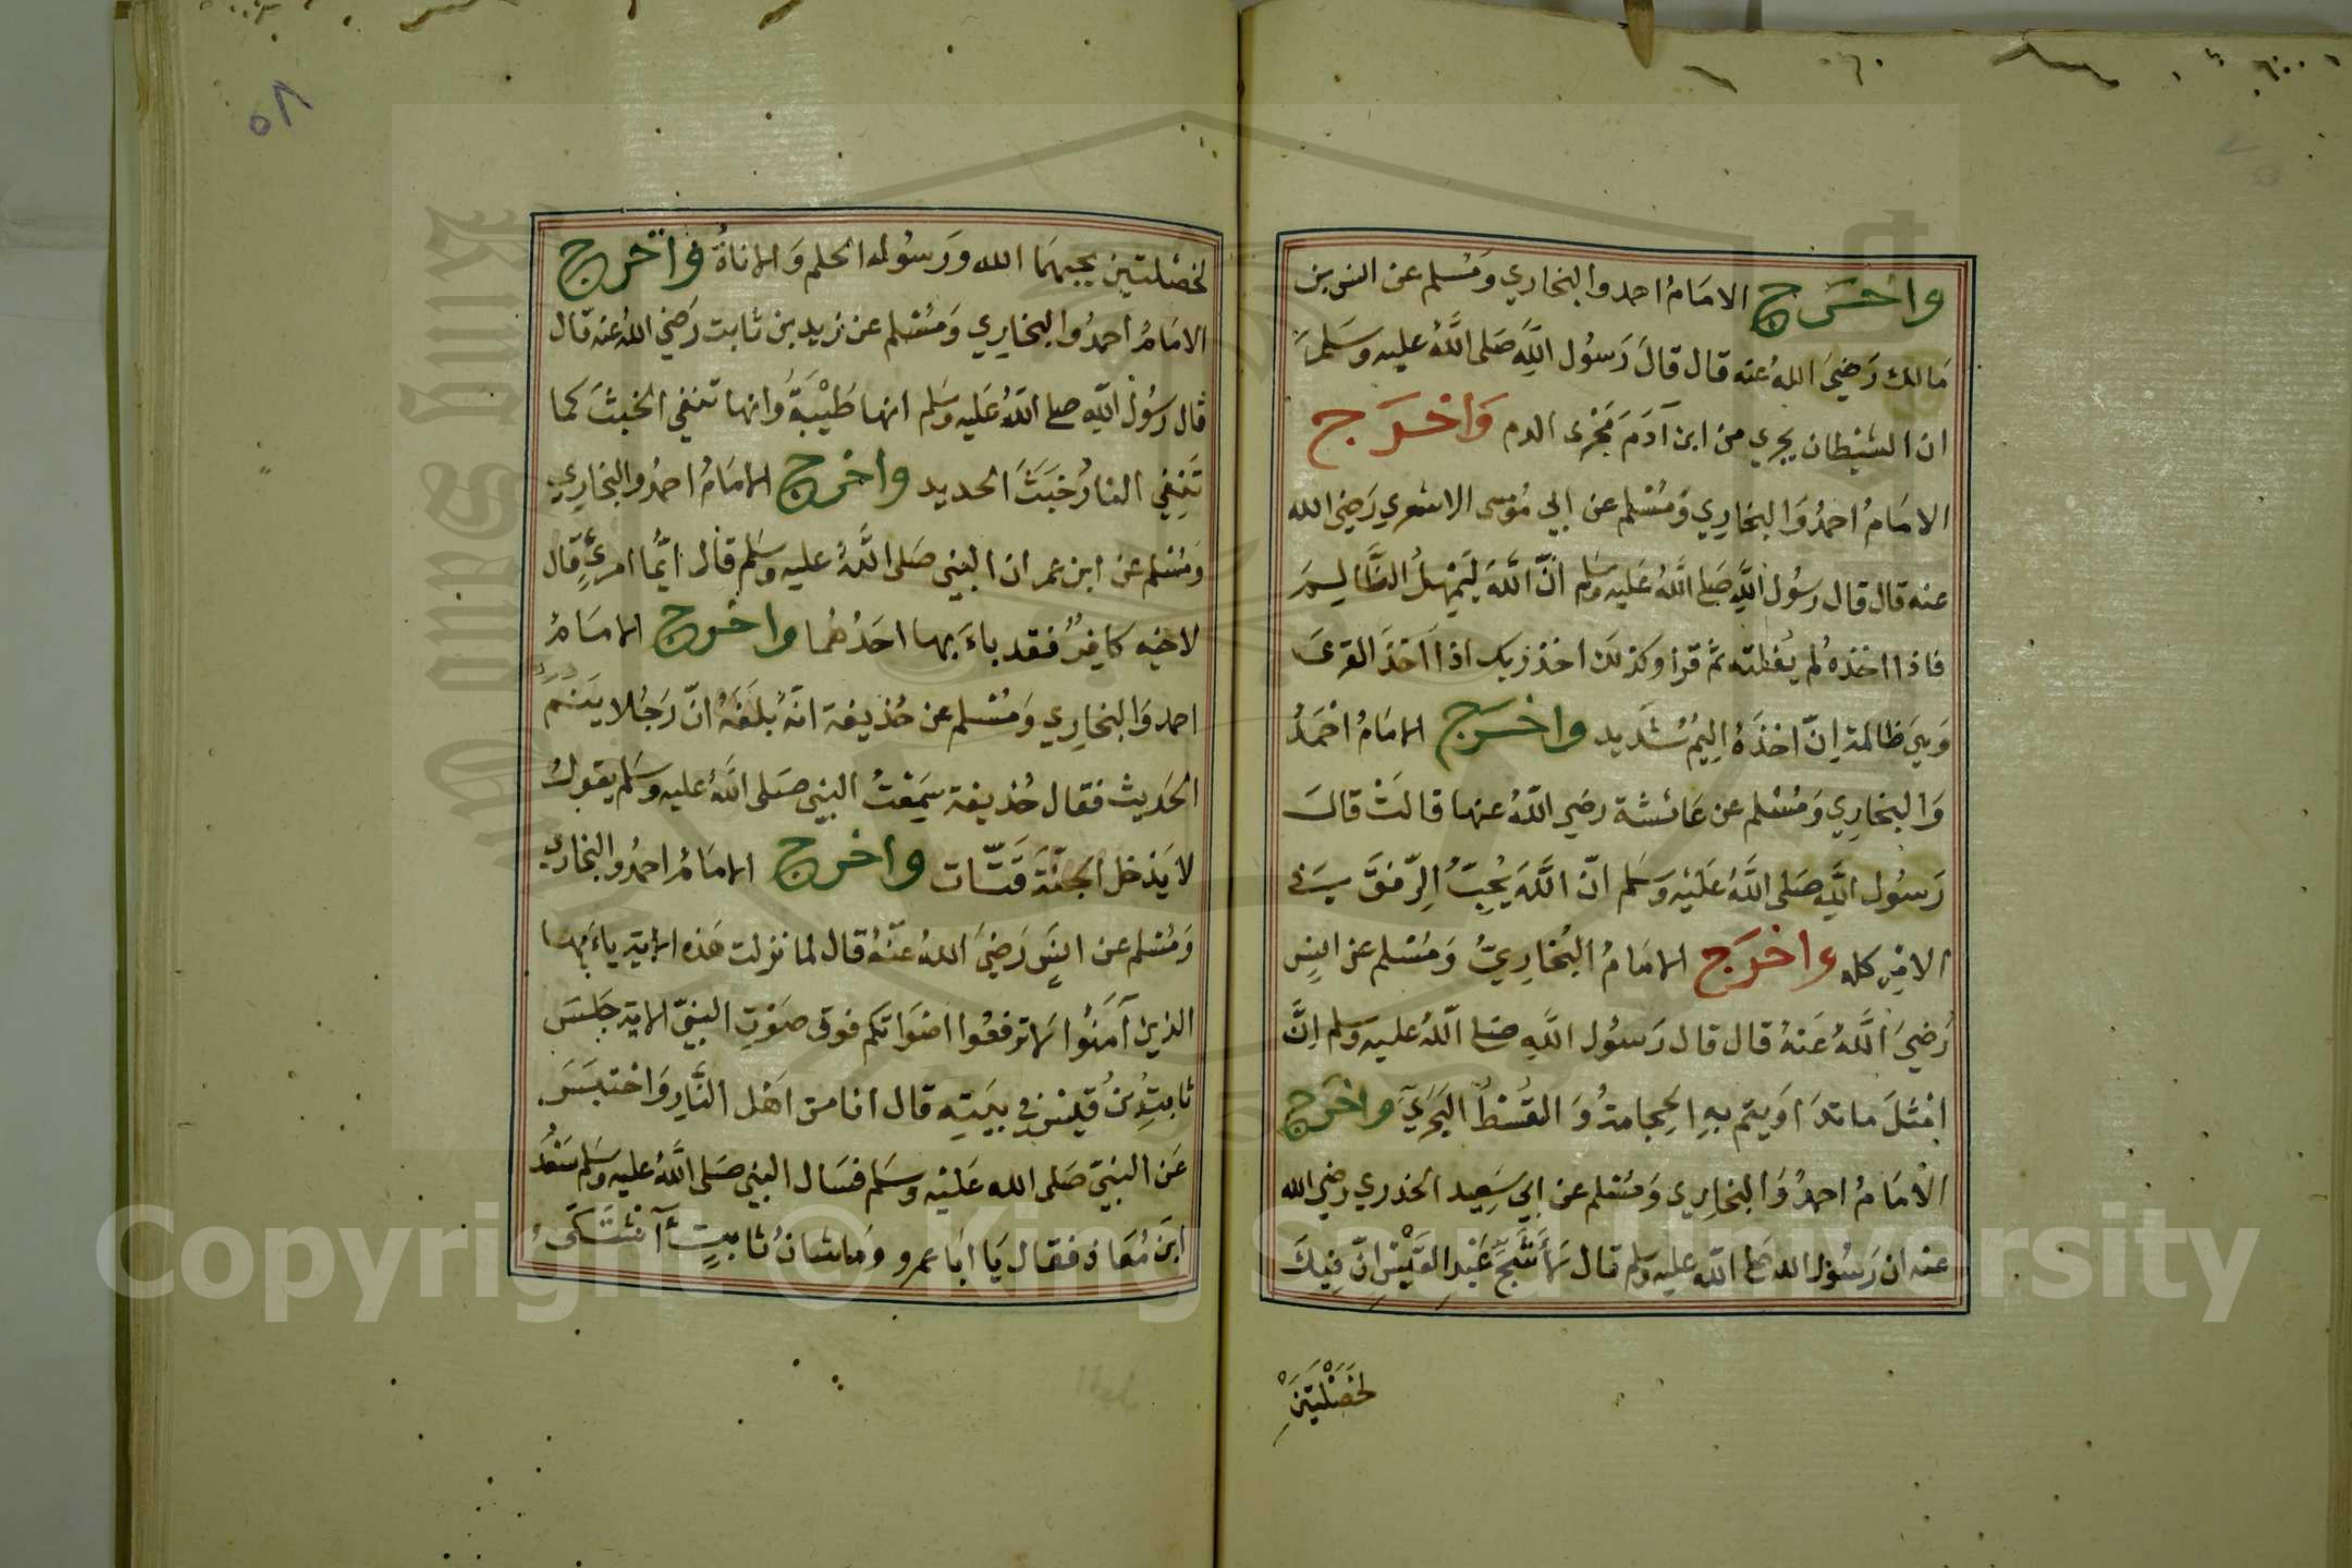 واخرج الامَامُ احمد والبخاري ومُسْلم عن انس بن
مَالك رَضيَ اللهُ عنه قال قالَ رَسُول اللَّهِ صَلى اللَّهُ عليه وسَلمَ
ان الشيْطان يجري من ابن آدَمَ مَجْرى الدم وَاخْرَج
الامَامُ احمدُ وَالبخارِي وَمُسْلم عن ابي مُوسى الاشعري رَضيَ الله
عنه قال قال رسُول اللَّهِ صَلى اللَّهُ عَليه وسَلم انّ اللَّهَ لَيُمْهِلُ الظَّالِمَ
فاذا اخذهُ لم يُفلته ثم قرا وكذلك اخذ ربك اذا اخذَ القرىَ
وَهيَ ظالمة اِنّ اخذَهُ اليمٌ شديد واخرج الامَامُ احْمَدُ
وَالبخارِي وَمُسْلم عن عَائشة رضي اللَّهُ عنها قالتْ قالَ
رَسُول اللَّهِ صَلى اللَّهُ عَلَيْه وَسَلم انّ اللَّهَ يُحِبُّ الرِّفقَ في
الامْرِ كله واخرَج الامَامُ البُخارِيُّ وَمُسْلم عن انس
رَضيَ اللَّهُ عَنهُ قال قال رَسُول اللَّهِ صَلى اللَّهُ عليه وسلم اِنَّ
امْثَلَ ما تدَاوَيتم بهِ الحِجامةُ وَالقُسْطُ البَحرَيّ واخرَج
الامَامُ احمدُ وَالبخارِي وَمُسْلم عن ابي سَعِيد الخدري رضي الله
عنه ان رَسُول الله صَلى اللَّه عليه وسَلم قال لأَشَجِّ عَبْدِ القَيْسِ انّ فِيكَ
لخَصْلَتيَنِْ
لخصْلتيْن يحبهمَا الله ورَسُوله الحلم وَالاناةُ واخرج
الامَامُ احمدُ وَالبخارِي وَمُسْلم عن زيد بن ثابت رَضيَ اللهُ عنه قال
قال رسُول اللَّهِ صلى اللَّهُ عَليه وسَلم انها طَيْبَةُ وَانها تنفي الخبثَ كما
تَنفِي النارُ خَبَثَ الحديد واخرج الامَامُ احمدُ والبخاري
وَمُسْلم عن ابن عمر ان النبي صَلى اللَّهُ عليه وسَلم قال ايُّما امرئٍ قال
لاخيه كافِرٌ فقد باءَ بها احَدُهُما واخرج الامَامُ
احمد وَالبخارِي وَمُسْلم عن حُذيفة انهُ بلَغَهُ انّ رَجُلا ينمّ
الحَديث فقال حُذيفة سَمِعْتُ النبي صَلى اللَّهُ عليه وسَلم يقولُ
لا يَدْخل الجنَّةَ قَتَّات واخرج الامَامُ احمدُ والبخاري
وَمُسْلم عن انسٍ رَضيَ اللهُ عنهُ قال لما نزلت هَذه الاية ياءَيها
الذين آمَنُوا لا ترفعُوا اصْوَاتكم فوق صَوْتِ النبيّ الاية جَلسَ
ثابتِ بنُ قيْسٍ في بيَتِه قال انا من اَهْل النَّارِ وَاحتبَسَ
عَن النبيّ صَلى الله عَليْه وسَلم فسَال النبي صَلى اللَّهُ عليه وسَلم سَعْدَ
ابنَ مُعَاذ فقال يَا ابَا عمرو ومَا شانُ ثابتٍ ءَآشتَكَى